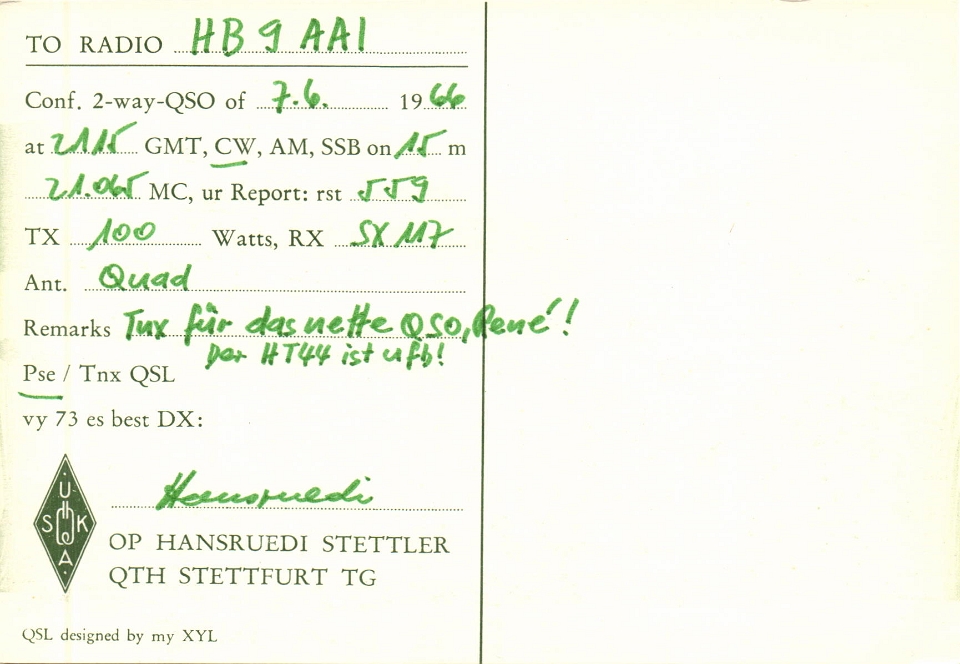 TO RADIO HB9AAI
Conf. 2-way-QSO of 7.6. 1966
at 2115 GMT, CW, AM, SSB on 15 m
21.065 MC, ur Report: rst 559
TX 100 Watts, RX SX 117
Ant. Quad
Remarks Tnx für das nette QSO, René!
Der HT44 ist ufb!
Pse / Tnx QSL
vy 73 es best DX:
Hansruedi
U
S K
A
OP HANSRUEDI STETTLER
QTH STETTFURT TG
QSL designed by my XYL